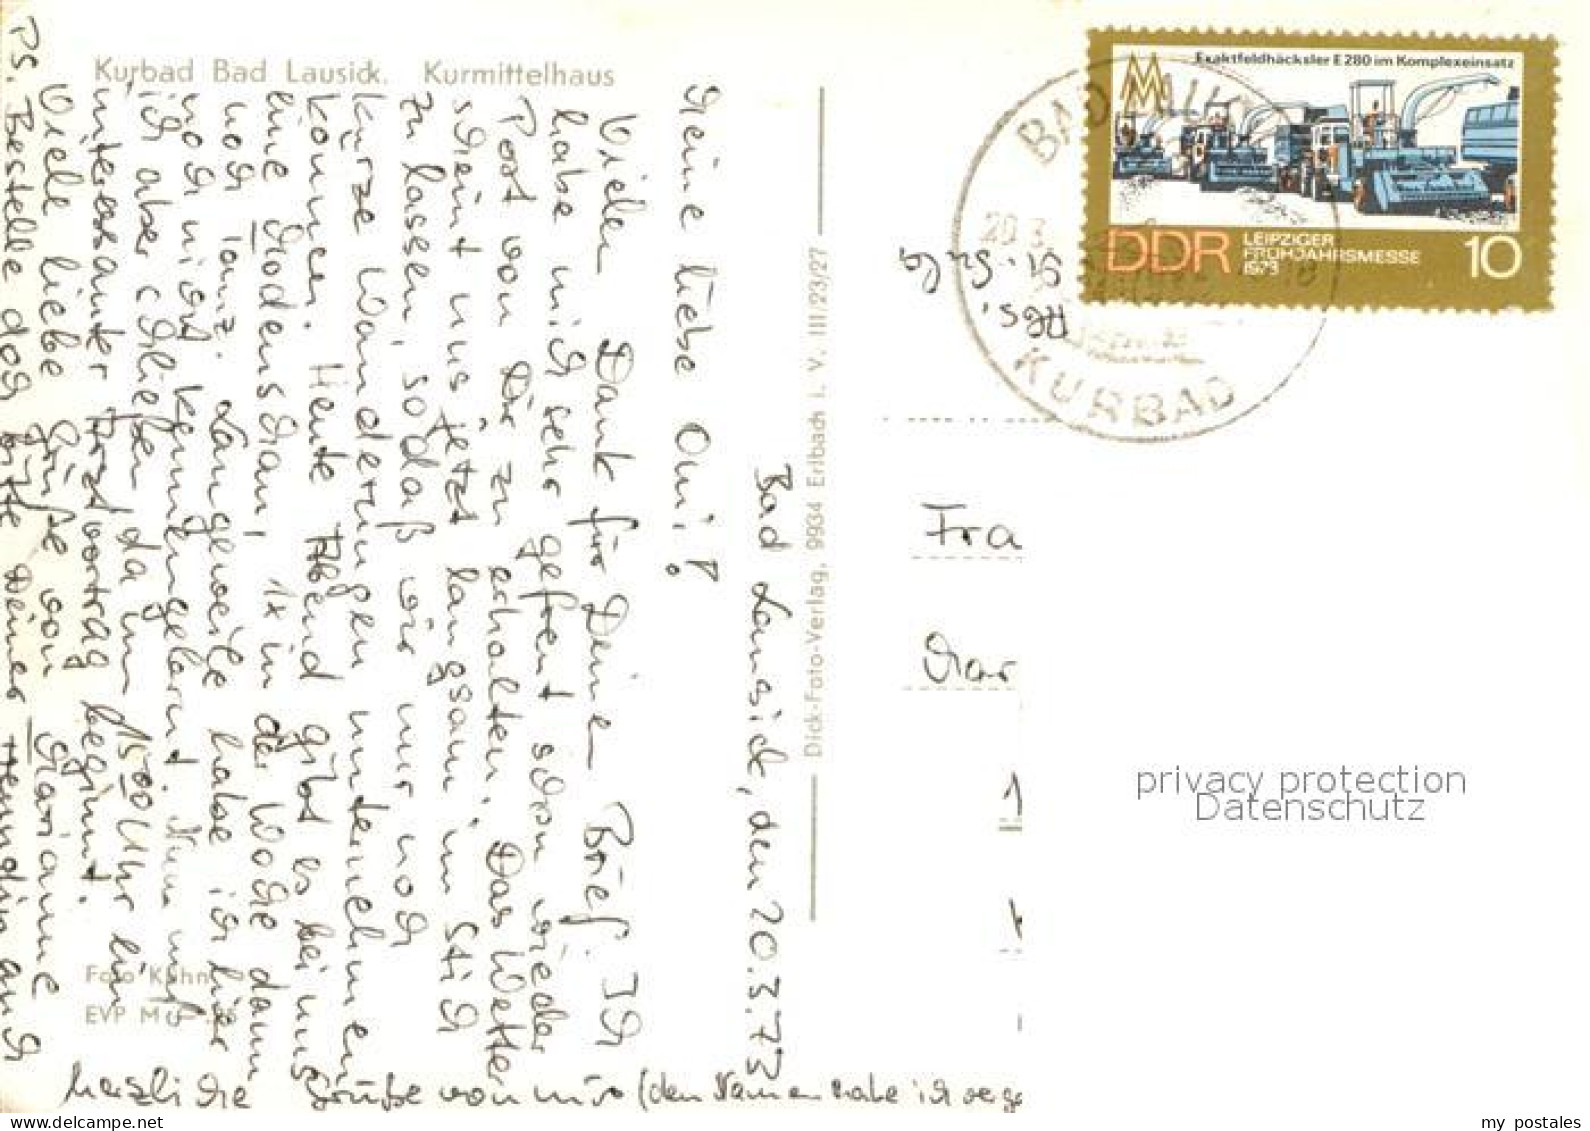 Kurbad Bad Lausick. Kurmittelhaus
Bad Lausick, den 20.3.73
Meine liebe Omi!
Vielen Dank für Deinen Brief. Ich
habe mich sehr gefreut schon wieder
Post von Dir zu erhalten. Das Wetter
scheint uns jetzt langsam im Stich
zu lassen, sodaß wir nur noch
kurze Wanderungen unternehmen
können. Heute Abend gibt es bei uns
eine Modenschau, 1x in der Woche dann
noch Tanz. Langeweile habe ich hier
noch nicht kennengelernt. Nun muß
ich aber schließen da um 15.00 Uhr ein
interessanter Arztvortrag beginnt.
Viele liebe Grüße von Marianne
PS. Bestelle doch bitte Deiner auch
herzliche Grüße von mir (den Namen habe ich
Foto Kühn
EVP M
Dick-Foto-Verlag, 9934 Erlbach i. V. III/23/27
Exaktfeldhäcksler E 280 im Komplexeinsatz
MM
DDR LEIPZIGER FRÜHJAHRSMESSE 1973 10
BAD
20.3.
KURBAD
Abs.
Fra
Mar
privacy protection
Datenschutz
my postales